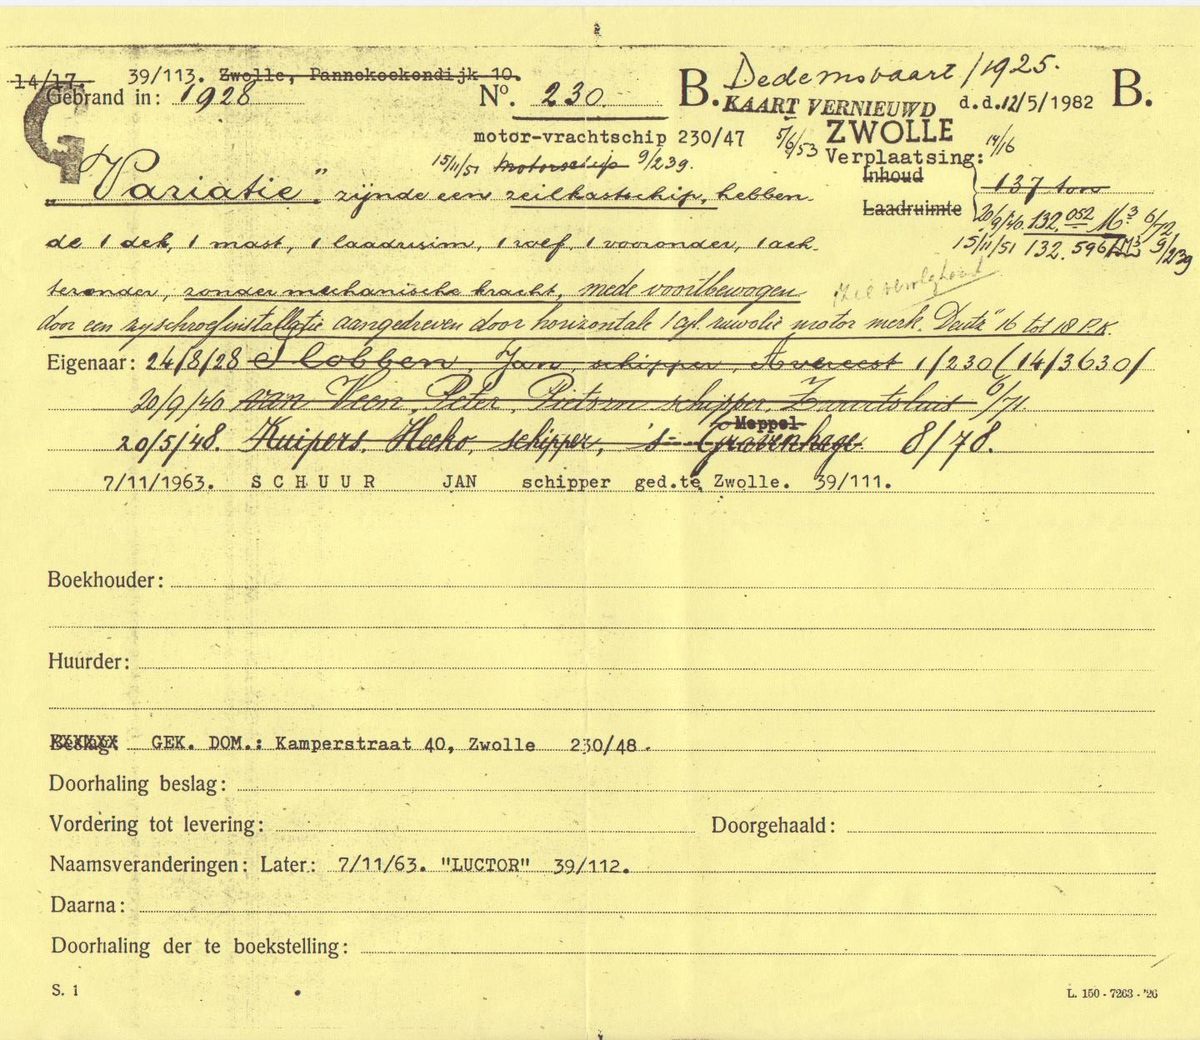 14/17. 39/113. Zwolle, Pannekoekendijk 10.
Gebrand in: 1928 No. 230. B. Dedemsvaart/1925. B.
KAART VERNIEUWD d.d. 12/5/1982
motor-vrachtschip 230/47 5/6/53 ZWOLLE 14/16
15/11/51 Motorschip 9/239. Verplaatsing:
"Variatie" zijnde een zeilkastschip, hebben-
Inhoud 137 ton
Laadruimte 20/9/40. 132.052 M3 6/72
de 1 dek, 1 mast, 1 laadruim, 1 roef, 1 vooronder, 1 ach-
15/11/51 132.596 M3 9/239
teronder, zonder mechanische kracht, mede voortbewogen
door een zyschroefinstallatie aangedreven door horizontale 1 cyl. ruwolie motor merk "Deutz" 16 tot 18 P.K.
Eigenaar: 24/8/28 Slobben, Jan, schipper, Avereest 1/230 (14/3630/
20/9/40 van Veen, Peter, Pietszn schipper, Zwartsluis 6/71.
Meppel
20/5/48. Kuipers, Heeko, schipper, 's-Gravenhage. 8/78.
7/11/1963. SCHUUR JAN schipper ged.te Zwolle. 39/111.
Boekhouder:
Huurder:
Beslag: GEK. DOM.: Kamperstraat 40, Zwolle 230/48.
Doorhaling beslag:
Vordering tot levering: Doorgehaald:
Naamsveranderingen: Later: 7/11/63. "LUCTOR" 39/112.
Daarna:
Doorhaling der te boekstelling:
S. 1 L. 150 - 7263 - '26